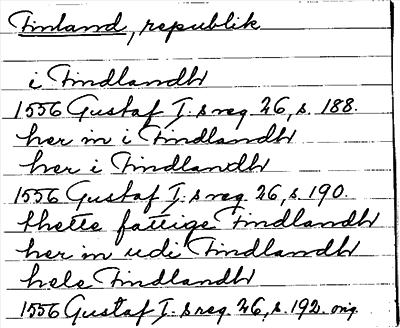 Finland, republik
i Findlandh
1556 Gustaf I:s reg. 26, s. 188.
her in i Findlandh
her i Findlandh
1556 Gustaf I:s reg 26, s. 190.
thette fattige Findlandh
her in udi Findlandh
hele Findlandh
1556 Gustaf I:s reg. 26, s. 192. orig.